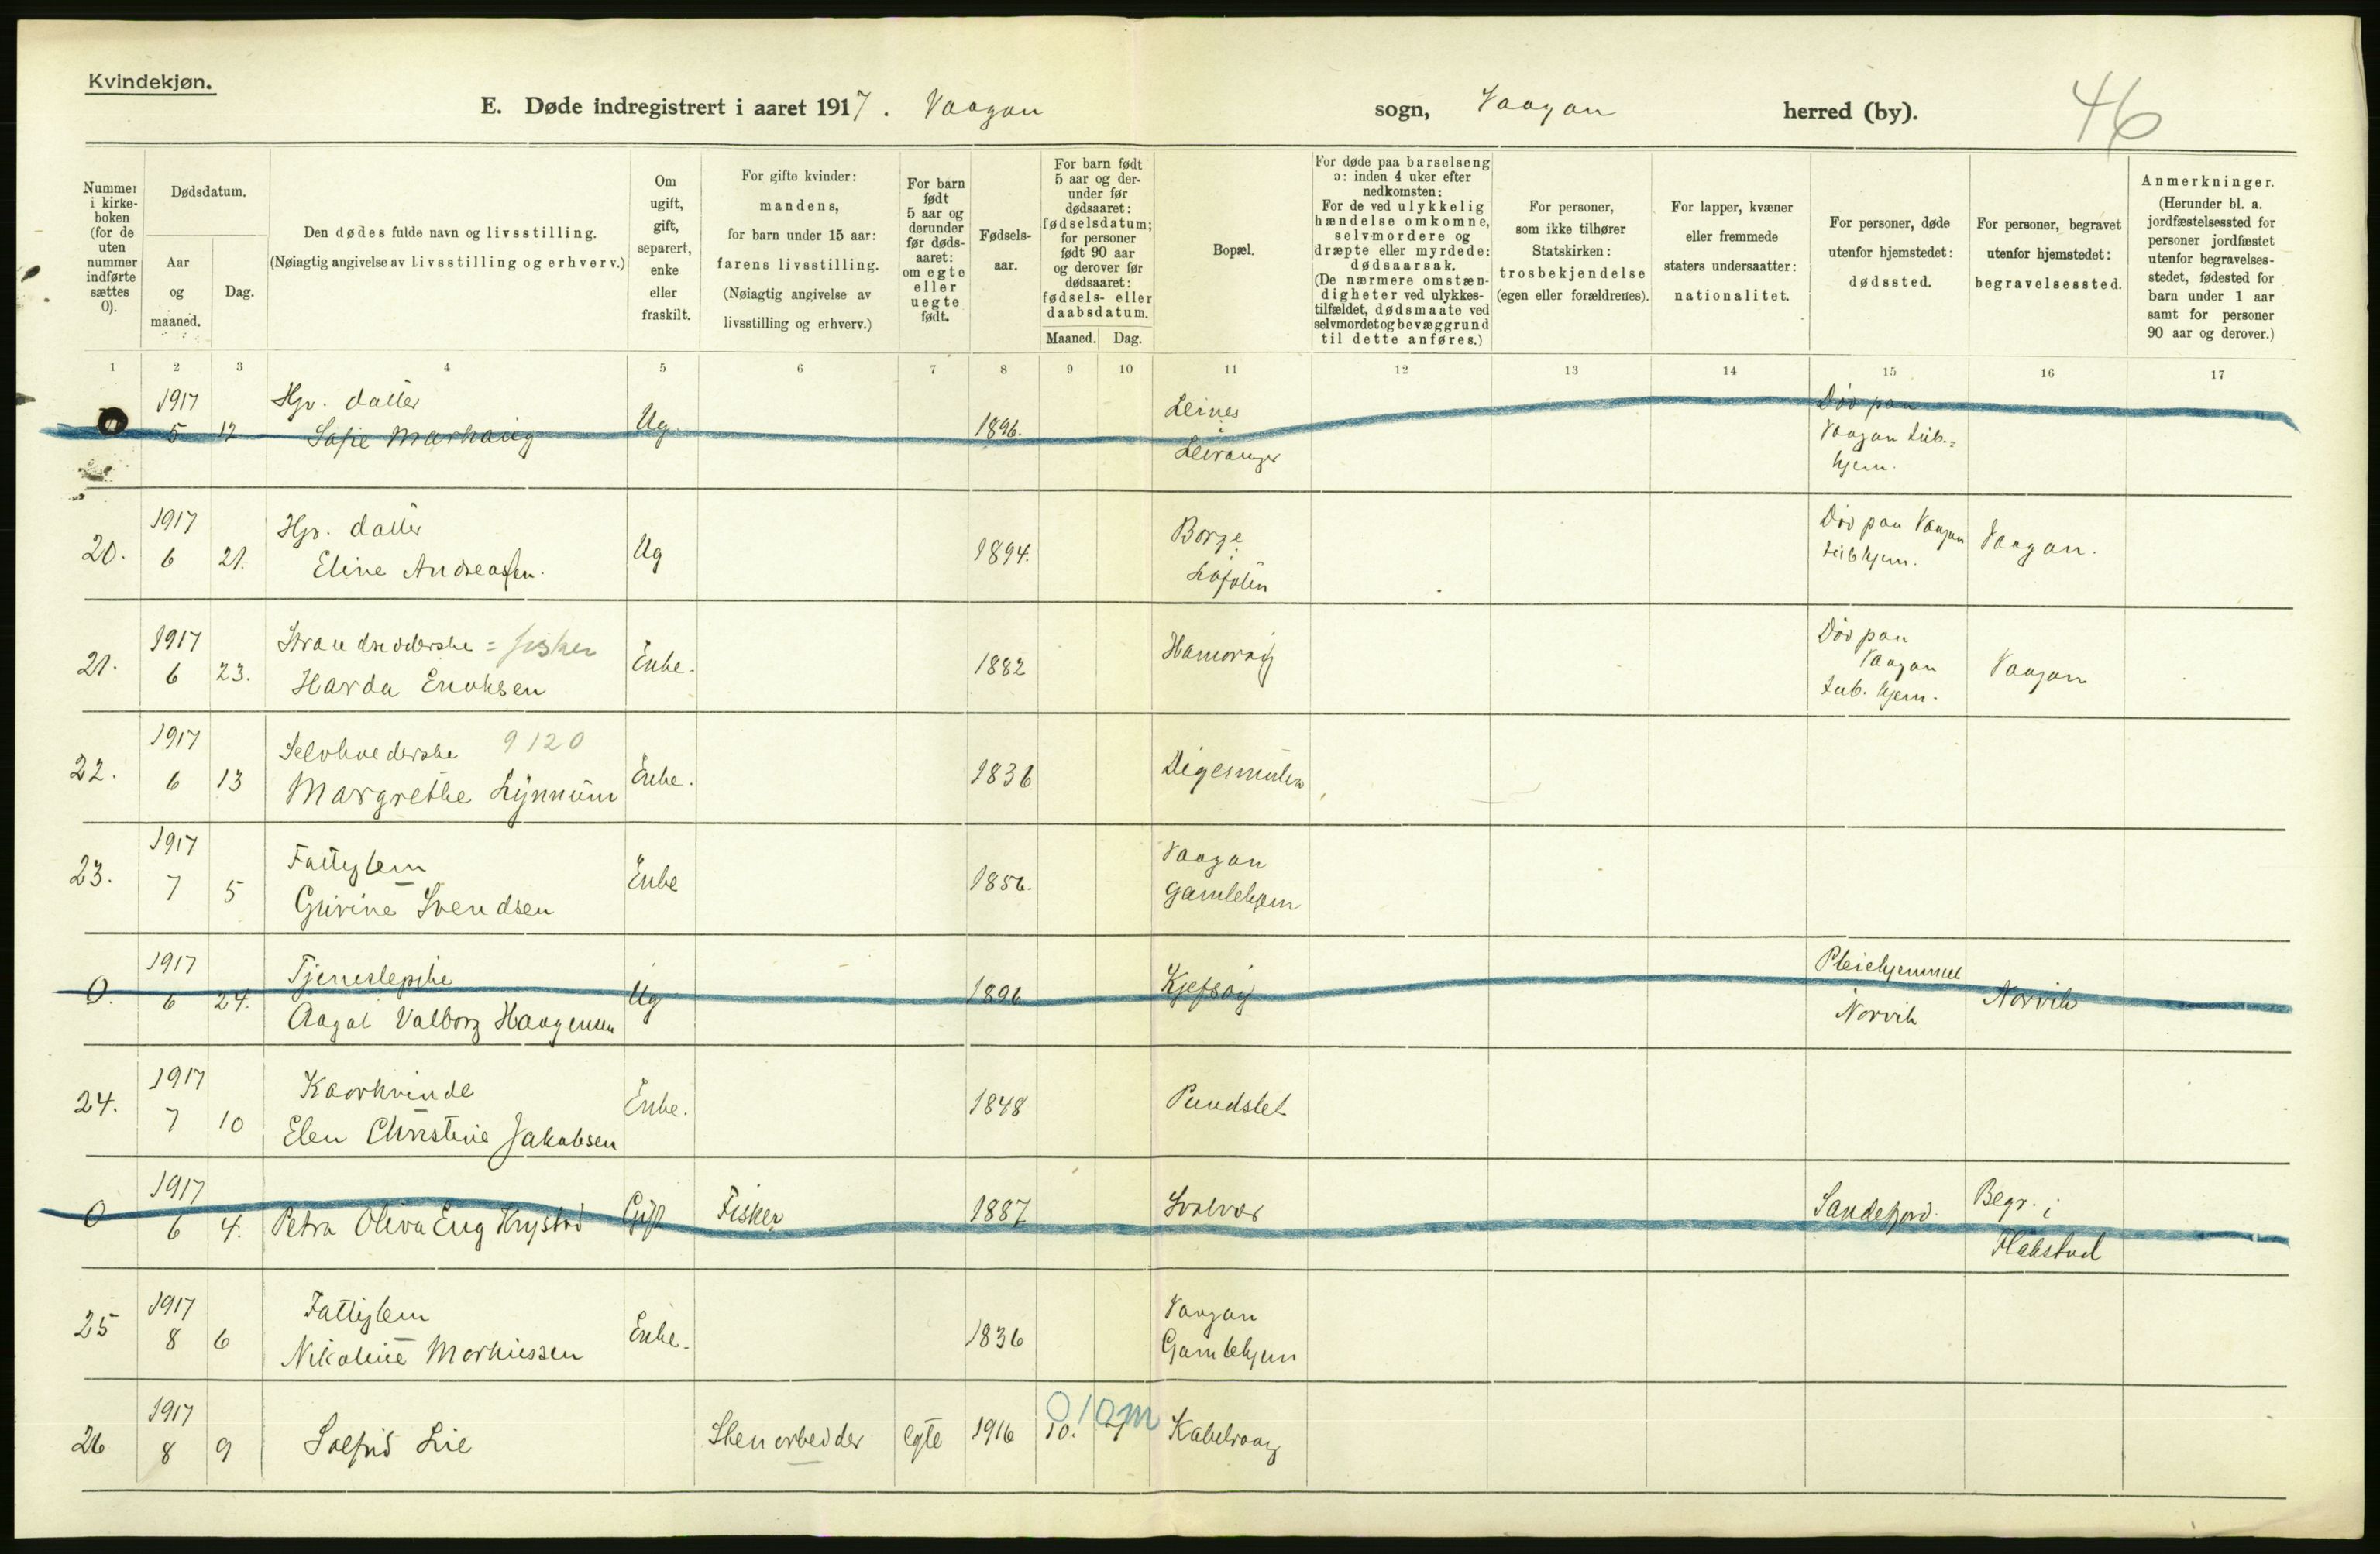 Kvindekjøn.
E. Døde indregistrert i aaret 1917. Vaagan sogn, Vaagan herred (by).
46
Nummer i kirkeboken (for de uten nummer indførte sættes 0).
Dødsdatum.
Aar og maaned.
Dag.
Den dødes fulde navn og livsstilling.
(Nøiagtig angivelse av livsstilling og erhverv.)
Om ugift, gift, separert, enke eller fraskilt.
For gifte kvinder: mandens, for barn under 15 aar: farens livsstilling. (Nøiagtig angivelse av livsstilling og erhverv.)
For barn født 5 aar og derunder før dødsaaret: om egte eller uegte født.
Fødselsaar.
For barn født 5 aar og derunder før dødsaaret: fødselsdatum; for personer født 90 aar og derover før dødsaaret: fødsels- eller daabsdatum.
Maaned. Dag.
Bopæl.
For døde paa barselseng ɔ: inden 4 uker efter nedkomsten: For de ved ulykkelig hændelse omkomne, selvmordere og dræpte eller myrdede: dødsaarsak. (De nærmere omstændigheter ved ulykkestilfældet, dødsmaate ved selvmordet og bevæggrund til dette anføres.)
For personer, som ikke tilhører Statskirken: trosbekjendelse (egen eller forældrenes).
For lapper, kvæner eller fremmede staters undersaatter: nationalitet.
For personer, døde utenfor hjemstedet: dødssted.
For personer, begravet utenfor hjemstedet: begravelsessted.
Anmerkninger. (Herunder bl. a. jordfæstelsessted for personer jordfæstet utenfor begravelsesstedet, fødested for barn under 1 aar samt for personer 90 aar og derover.)
1 2 3 4 5 6 7 8 9 10 11 12 13 14 15 16 17
1917 Hjv. datter Leines Død paa
5 12 Sofie Markaug Ug. 1896. i Vaagan tub.=
Leiranger hjem.
1917 Hjv. datter Borge Død paa Vaagan
20. 6 21. Eline Andreassen. Ug 1894. i Lofoten tubhjem. Vaagan.
1917 Strandsidderske = fisker Død paa
21. 6 23. Harda Enoksen Enke. 1882 Hamnvig Vaagan tub. hjem. Vaagan
1917 Selvhuederske 9120
22. 6 13 Margrethe Lynnum Enke. 1836 Digermulen
1917 Fattiglem Vaagan
23. 7 5 Gurine Svendsen Enke 1856. Gamlehjem
1917 Tjenestepike Pleiehjemmet
0. 6 24. Aagot Valborg Haagensen Ug 1896 Norvik Norvik
1917 Kaarkvinde
24. 7 10 Elen Christine Jakobsen Enke. 1848 Pundslet
1917
0 6 4. Petra Oliva Eug Krystad Gift Fisker 1887 Svolvær Sandefjord. Begr. i Flakstad
1917 Fattiglem Vaagan
25 8 6 Nikoline Markussen Enke. 1836 Gamlehjem
1917 0 10 m
26 8 9 Solfrid Lie Stenarbeider egte 1916 10. 7 Kabelvaag